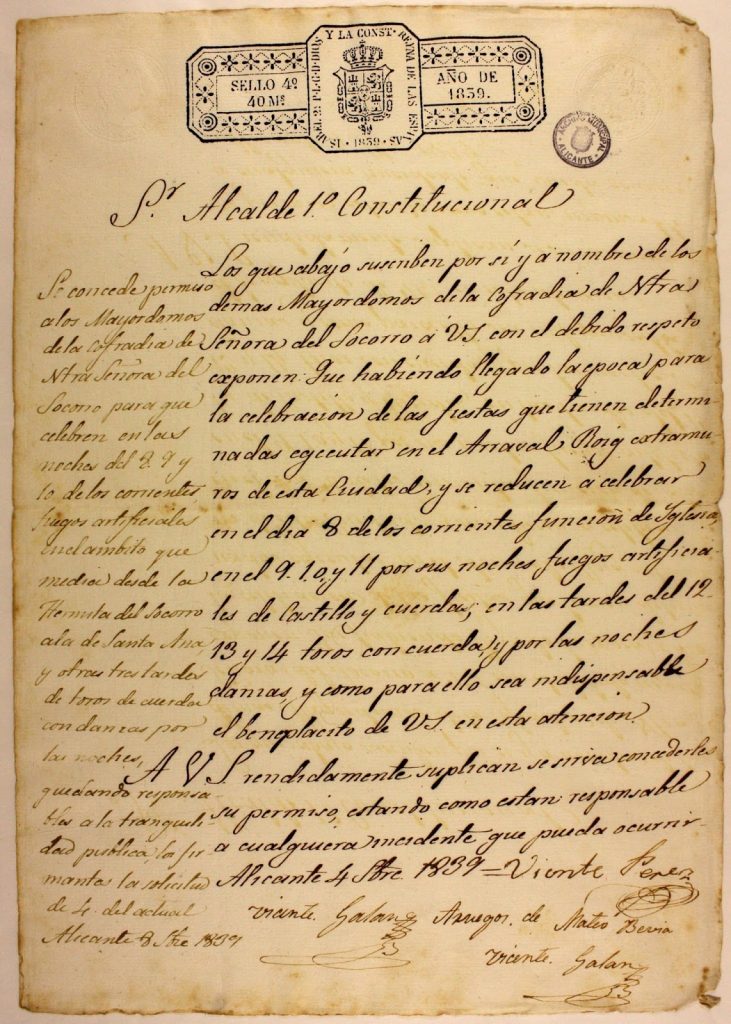 SELLO 4º
40 Mº
ISABEL 2ª P. L. G. D. DIOS Y LA CONST. REYNA DE LAS ESPAÑAS
1839
AÑO DE
1839.
ARCHIVO MUNICIPAL
ALICANTE
Sr. Alcalde 1.º Constitucional
Los que abajo suscriben por sí y a nombre de los
demas Mayordomos de la Cofradia de Ntra
Señora del Socorro á VS. con el debido respeto
exponen: Que habiendo llegado la epoca para
la celebracion de las fiestas que tienen determi-
nadas egecutar en el Arraval Roig extramu-
ros de esta Ciudad, y se reducen a celebrar
en el dia 8 de los corrientes funcion de Iglesia,
en el 9. 10, y 11 por sus noches fuegos artificia-
les de Castillo y cuerdas; en las tardes del 12-
13 y 14 toros con cuerda, y por las noches
danzas, y como para ello sea indispensable
el beneplacito de VS. en esta atencion.
A VS rendidamente suplican se sirva concederles
su permiso, estando como estan responsable
a cualquiera incidente que pueda ocurrir-
Alicante 4 Stre. 1839 = Vicente Perez
Vicente. Galan
Arruegos. de Mateo Bevia
Vicente. Galan
Se concede permiso
a los Mayordomos
de la Cofradia de
Ntra Señora del
Socorro para que
celebren en las
noches del 8. 9 y
10 de los corrientes
fuegos artificiales
en el ambito que
media desde la
Hermita del Socorro
a la de Santa Ana,
y otras tres tardes
de toros de cuerda
con danzas por
las noches,
quedando responsa-
bles a la tranquili-
dad publica, los fir-
manta la solicitud
de 4. del actual
Alicante 8 Stre 1839